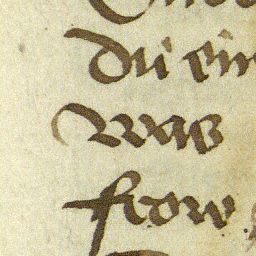 Du ein
Was
frow